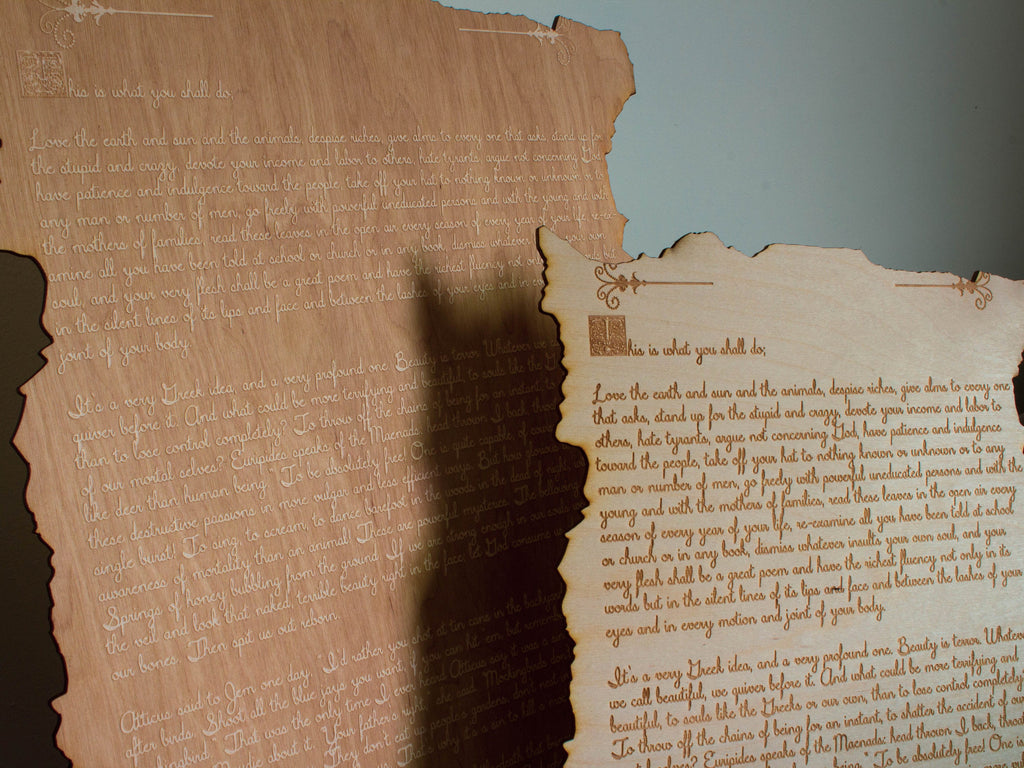 This is what you shall do;
Love the earth and sun and the animals, despise riches, give alms to every one that asks, stand up for
the stupid and crazy, devote your income and labor to others, hate tyrants, argue not concerning God,
have patience and indulgence toward the people, take off your hat to nothing known or unknown or to
any man or number of men, go freely with powerful uneducated persons and with the young and with
the mothers of families, read these leaves in the open air every season of every year of your life, re-ex-
amine all you have been told at school or church or in any book, dismiss whatever your own
soul, and your very flesh shall be a great poem and have the richest fluency not only
in the silent lines of its lips and face and between the lashes of your eyes and in
joint of your body.
It's a very Greek idea, and a very profound one. Beauty is terror. Whatever we
quiver before it. And what could be more terrifying and beautiful, to souls like the
than to lose control completely? To throw off the chains of being for an instant,
of our mortal selves? Euripides speaks of the Maenads: head thrown I back, throat
like deer than human being." To be absolutely free! One is quite capable, of
these destructive passions in more vulgar and less efficient ways. But how glorious
single burst! To sing, to scream, to dance barefoot in the woods in the dead of night,
awareness of mortality than an animal! These are powerful mysteries. The bellowing
Springs of honey bubbling from the ground. If we are strong enough in our souls
the veil and look that naked, terrible beauty right in the face; let God consume
our bones. Then spit us out reborn.
Atticus said to Jem one day, "I'd rather you shot at tin cans in the backyard
after birds. Shoot all the blue jays you want, if you can hit 'em, but remember
mockingbird." That was the only time I ever heard Atticus say it was a
about it. "Your father's right," she said. "Mockingbirds don't
They don't eat up people's gardens, don't
That's why it's a sin to kill a
This is what you shall do;
Love the earth and sun and the animals, despise riches, give alms to every one
that asks, stand up for the stupid and crazy, devote your income and labor to
others, hate tyrants, argue not concerning God, have patience and indulgence
toward the people, take off your hat to nothing known or unknown or to any
man or number of men, go freely with powerful uneducated persons and with the
young and with the mothers of families, read these leaves in the open air every
season of every year of your life, re-examine all you have been told at school
or church or in any book, dismiss whatever insults your own soul, and your
very flesh shall be a great poem and have the richest fluency not only in its
words but in the silent lines of its lips and face and between the lashes of your
eyes and in every motion and joint of your body.
It's a very Greek idea, and a very profound one. Beauty is terror. Whatever
we call beautiful, we quiver before it. And what could be more terrifying and
beautiful, to souls like the Greeks or our own, than to lose control completely?
To throw off the chains of being for an instant, to shatter the accident of our
mortal selves? Euripides speaks of the Maenads: head thrown I back, throat
being." To be absolutely free! One is